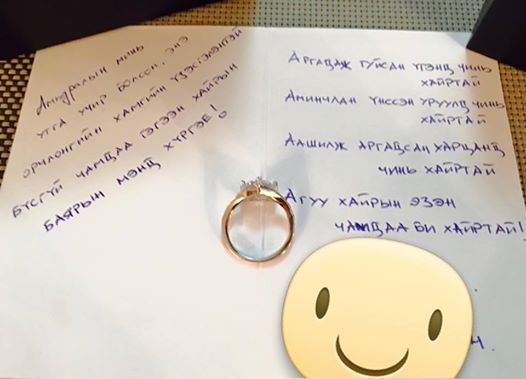 Амьдралын минь
утга учир болсон, энэ
орчлонгийн хамгийн үзэсгэлэнтэй
бүсгүй чамдаа гэгээн хайрын
баярын мэнд хүргэе!
Аргадаж гуйсан үгэнд чинь
хайртай
Аминчлан үнссэн уруулд чинь
хайртай
Аашилж аргадсан харцанд
чинь хайртай
Агуу хайрын эзэн
чамдаа би хайртай!